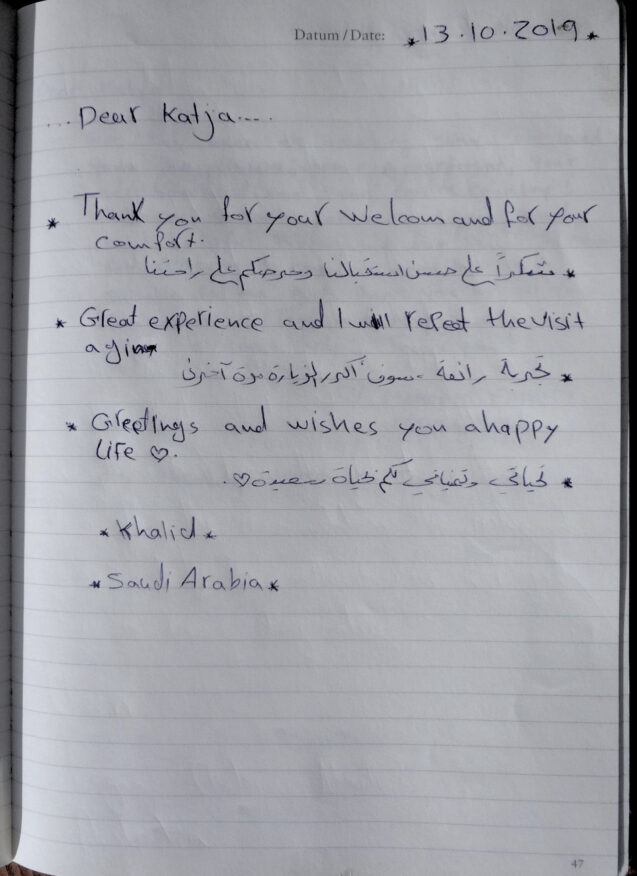 Datum / Date: * 13.10.2019 *
... Dear Katja....
* Thank you for your welcom and for your
comfort.
* متشكراً على حسن استقبالنا وحرصكم على راحتنا
* Great experience and I will repeat the visit
agin
* تجربة رائعة . سوف أكرر الزيارة مرة آخرى
* Greetings and wishes you a happy
life ♡.
* تحياتي وتمنياتي لكم بحياة سعيدة ♡.
* Khalid *
* Saudi Arabia *
47